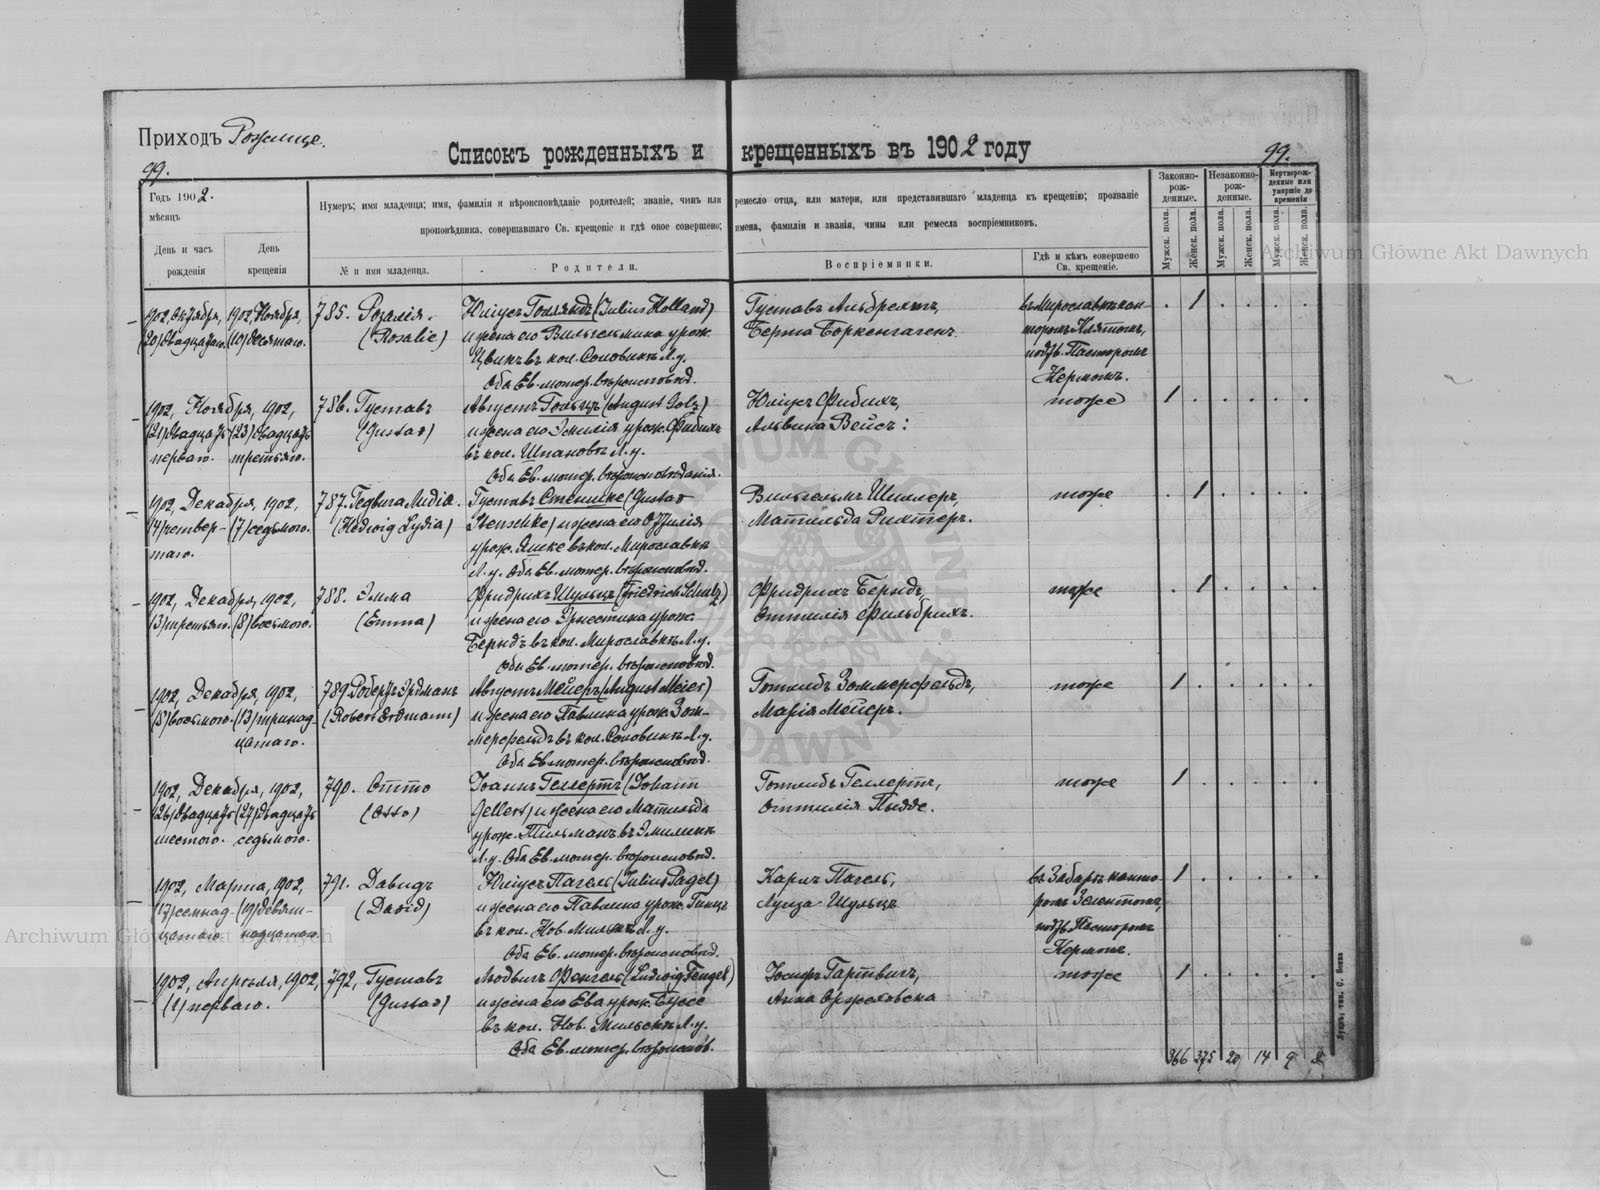 Приходъ Рожище.
99.
Списокъ рожденныхъ и крещенныхъ въ 1902 году
99.
Годъ 1902.
мѣсяцъ
День и часъ рожденія
День крещенія
Нумеръ; имя младенца; имя, фамилія и вѣроисповѣданіе родителей; званіе, чинъ или ремесло отца, или матери, или представившаго младенца къ крещенію; прозваніе
проповѣдника, совершавшаго Св. крещеніе и гдѣ оное совершено; имена, фамиліи и званія, чины или ремесла воспріемниковъ.
№ и имя младенца.
Родители.
Воспріемники.
Гдѣ и кѣмъ совершено Св. крещеніе.
Законно-рож-денные.
Незаконно-рож-денные.
Мертворож-денные или умершіе до крещенія
Мужск. пола.
Женск. пола.
Мужск. пола.
Женск. пола.
Мужск. пола.
Женск. пола.
1902, Октября, 1902, Ноября, 785. Розалія. Юліусъ Голландъ (Julius Holland) Густавъ Альбрехтъ, въ Мирославкѣ кан- . 1 . . . .
(20) двадцатаго. (10) десятаго. (Rosalie) и жена его Вильгельмина урож. Берта Боркенгагенъ. торомъ Клятомъ,
Цвикъ въ кол. Соловинъ Л. у. подтв. Пасторомъ
Оба Ев. лютер. вѣроисповѣд. Кермомъ.
1902, Ноября, 1902, 786. Густавъ Августъ Гольцъ (August Golz) Юліусъ Фибихъ, тоже 1 . . . . .
(21) двадцать (23) двадцать (Gustav) и жена его Эмилія урож. Фибихъ Альвина Вейсъ:
перваго. третьяго. въ кол. Шпановъ Л. у.
Оба Ев. лютер. вѣроисповѣданія.
1902, Декабря, 1902, 787. Гедвига Лидія. Густавъ Стеншке (Gustav Вильгельмъ Шиллеръ, тоже . 1 . . . .
(4) четвер- (7) седьмого. (Hedwig Lydia) Stenschke) и жена его Оттилія Матильда Рихтеръ.
таго. урож. Яшке въ кол. Мирославкѣ
Л. у. Оба Ев. лютер. вѣроисповѣд.
1902, Декабря, 1902, 788. Эмма Фридрихъ Шульцъ (Friedrich Schulz) Фридрихъ Берндъ, тоже . 1 . . . .
(3) третьяго. (8) восьмого. (Emma) и жена его Эрнестина урож. Оттилія Фильбрихъ.
Берндъ въ кол. Мирославкѣ Л. у.
Оба Ев. лютер. вѣроисповѣд.
1902, Декабря, 1902, 789. Робертъ Эрдманъ Августъ Мейеръ (August Meier) Готлибъ Зоммерфельдъ, тоже 1 . . . . .
(8) восьмого. (13) тринад- (Robert Erdmann) и жена его Павлина урож. Зом- Марія Мейеръ.
цатаго. мерфельдъ въ кол. Соловинъ Л. у.
Оба Ев. лютер. вѣроисповѣд.
1902, Декабря, 1902, 790. Отто Іоганъ Геллертъ (Johann Готлибъ Геллертъ, тоже 1 . . . . .
(26) двадцать (27) двадцать (Otto) Gellert) и жена его Матильда Оттилія Пыдде.
шестого. седьмого. урож. Тильманъ въ Эмилинѣ
Л. у. Оба Ев. лютер. вѣроисповѣд.
1902, Марта, 1902, 791. Давидъ Юліусъ Пагель (Julius Pagel) Карлъ Пагель, въ Забарѣ канто- 1 . . . . .
(17) семнад- (19) девят- (David) и жена его Павлина урож. Гинцъ Луиза Шульцъ ромъ
цатаго. надцатаго. въ кол. Нов. Мильскъ Л. у. подтв. Пасторомъ
Оба Ев. лютер. вѣроисповѣд. Кермомъ.
1902, Апрѣля, 1902, 792, Густавъ Людвигъ Фенгель (Ludwig Fengel) Іосифъ Гартвигъ, тоже 1 . . . . .
(1) перваго. (Gustav) и жена его Ева урож. Буссе Анна Оржеховска
въ кол. Нов. Мильскъ Л. у.
Оба Ев. лютер. вѣроисповѣд.
366 375 20 14 9 8
Archiwum Główne Akt Dawnych
Archiwum Główne Akt Dawnych
ARCHIWUM GŁÓWNE AKT DAWNYCH